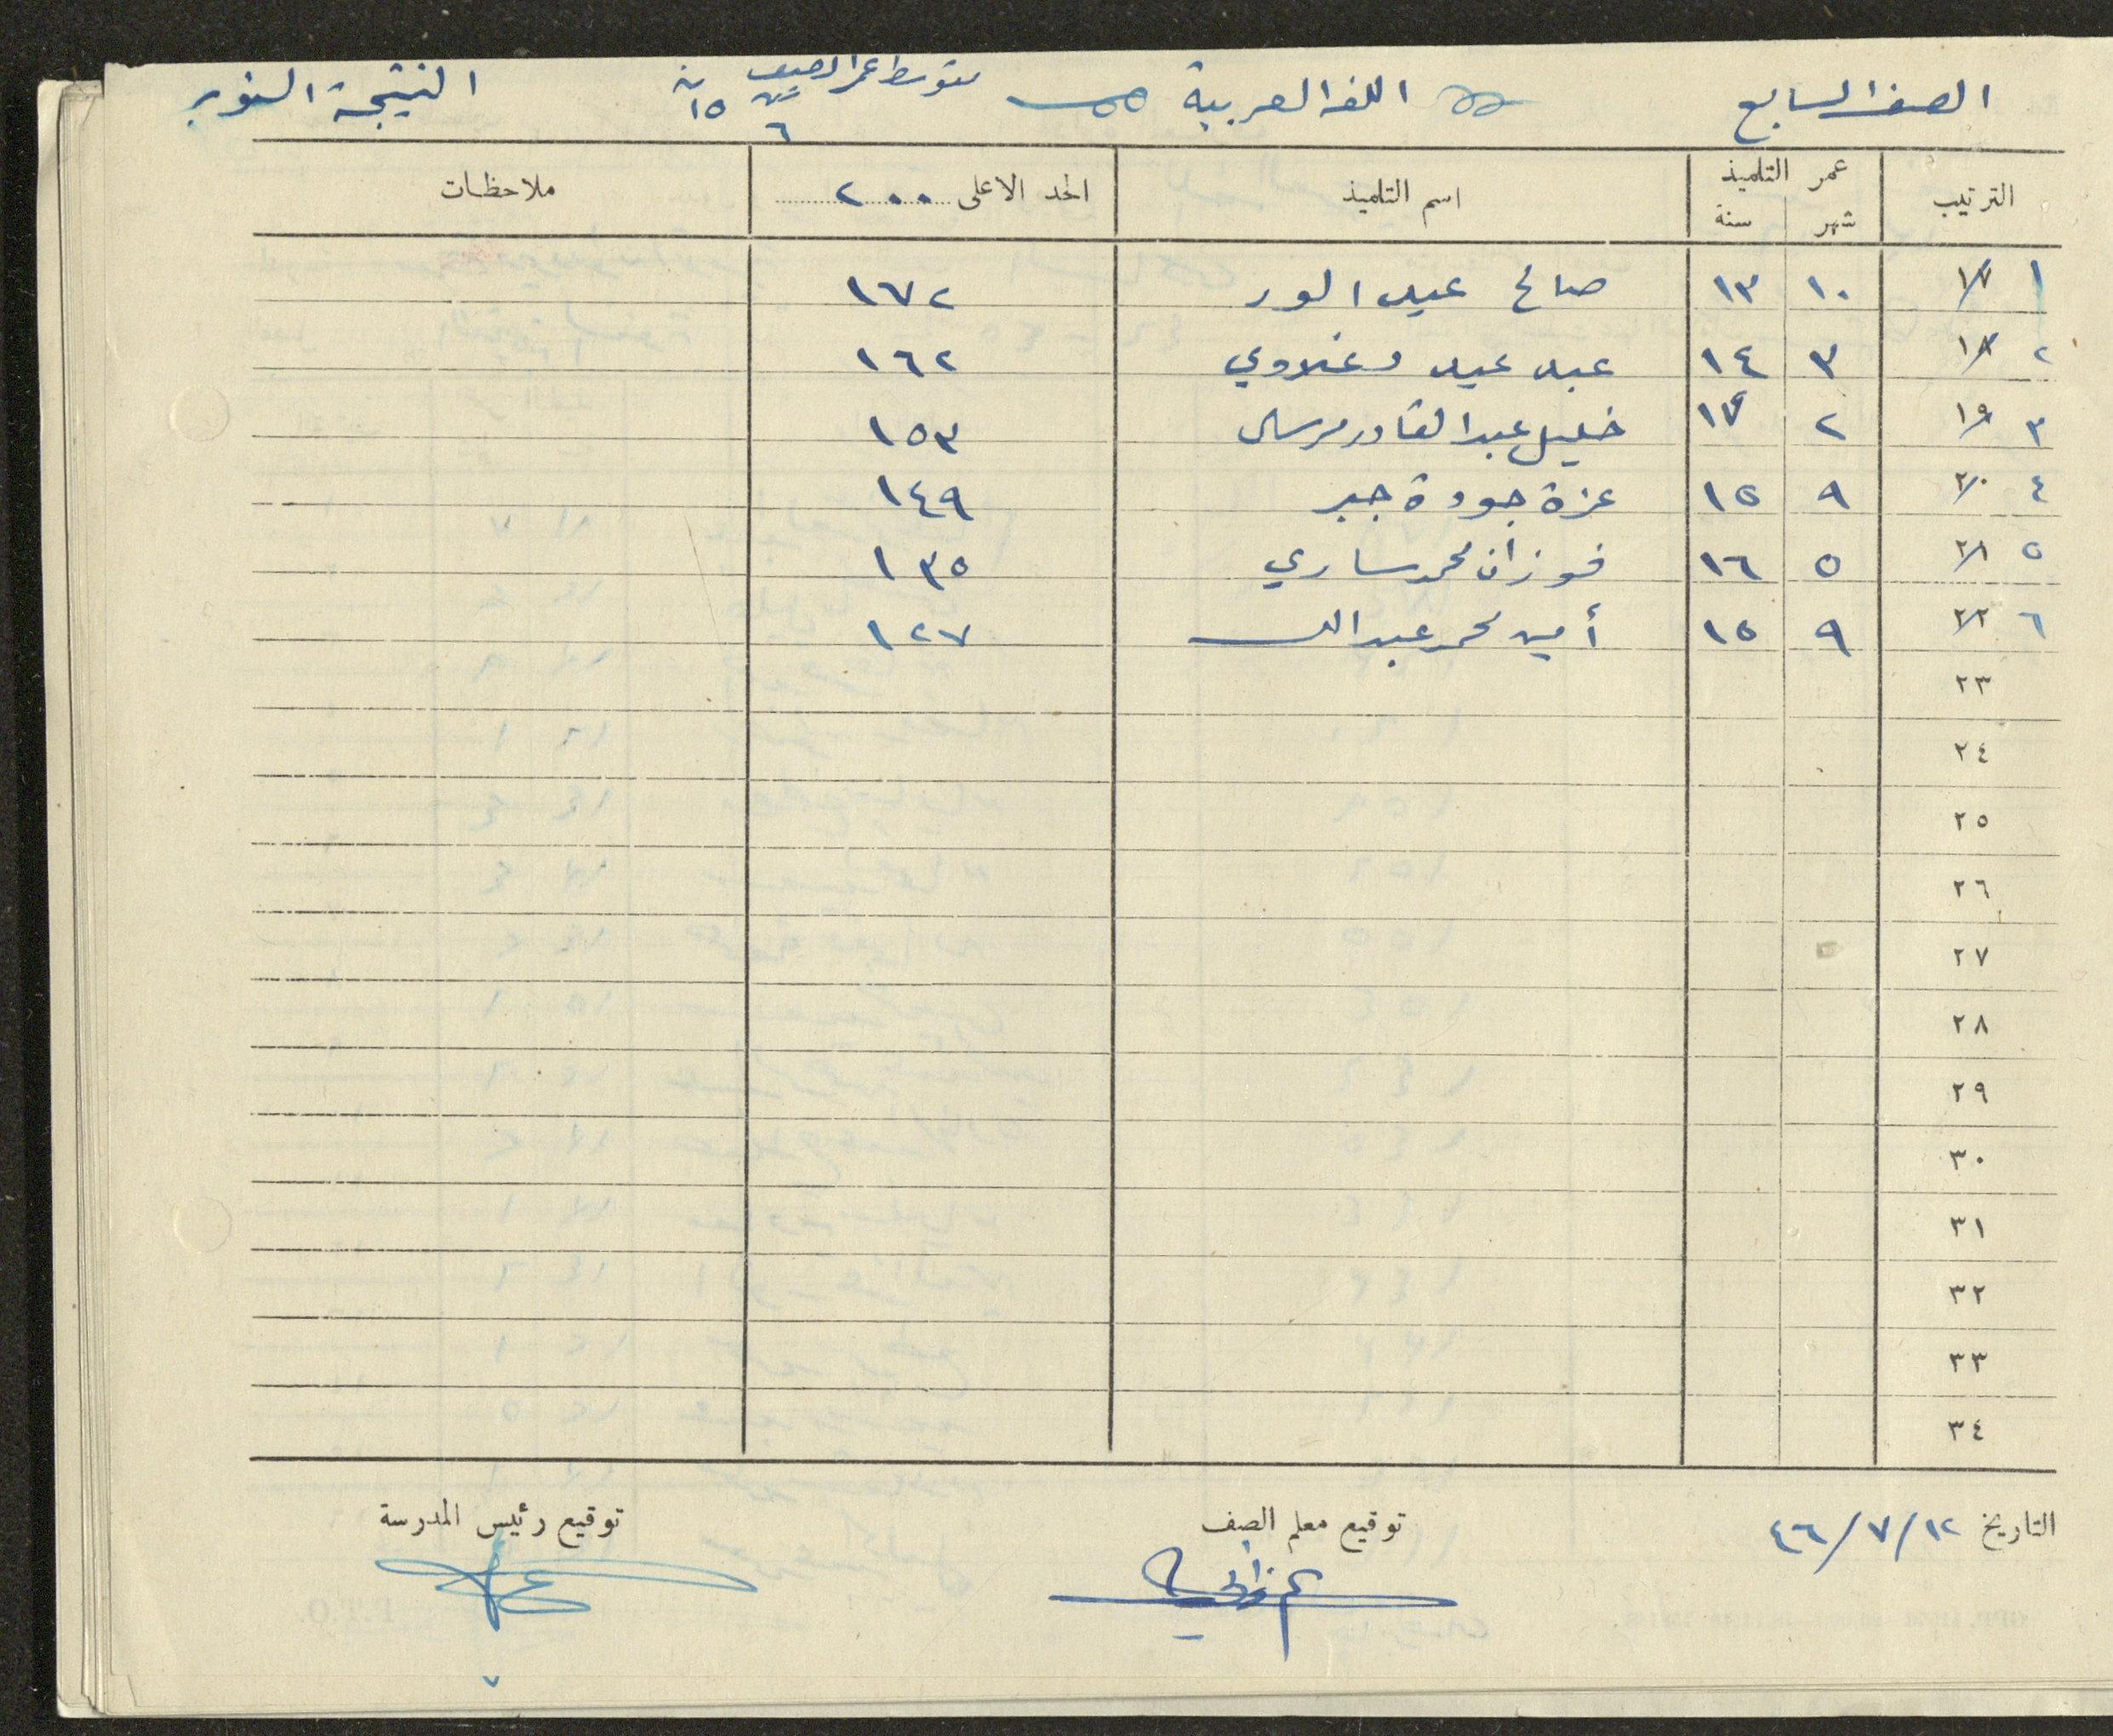 الصف السابع اللغة العربية متوسط عمر الصف ١٥ ٦ النتيجة السنوية
الترتيب عمر التلميذ شهر سنة اسم التلميذ الحد الاعلى ٢٠٠ ملاحظات
١ ١٧ ١٠ ١٣ صالح عيد الور ١٧٢
٢ ١٨ ٣ ١٤ عبد عيد وغلاوي ١٦٢
٣ ١٩ ٢ خليل عبد القادر مرسال ١٥٣
٤ ٢٠ ٩ ١٥ عزة جودة جبر ١٤٩
٥ ٢١ ٥ ١٦ فوزان محمد ساري ١٣٥
٦ ٢٢ ٩ ١٥ أمين محمد عبدالله ١٢٧
٢٣
٢٤
٢٥
٢٦
٢٧
٢٨
٢٩
٣٠
٣١
٣٢
٣٣
٣٤
التاريخ ١٢/٧/٤٦ توقيع معلم الصف توقيع رئيس المدرسة